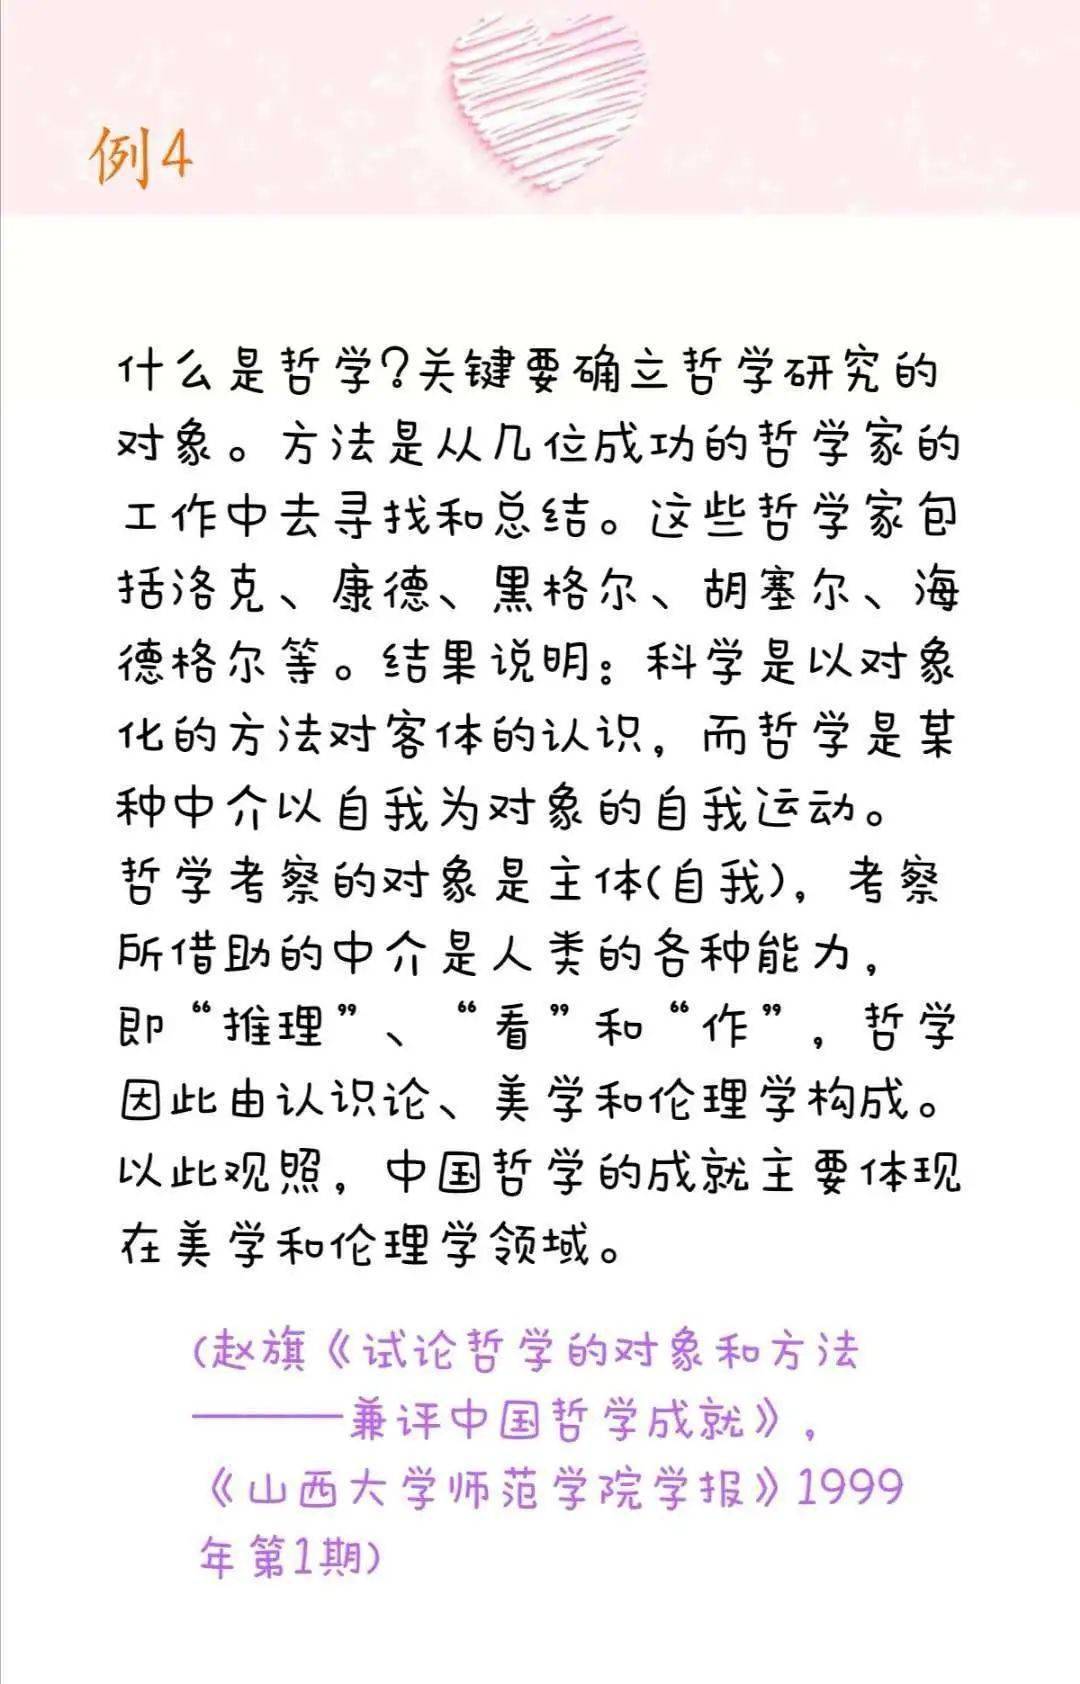 例4
什么是哲学?关键要确立哲学研究的
对象。方法是从几位成功的哲学家的
工作中去寻找和总结。这些哲学家包
括洛克、康德、黑格尔、胡塞尔、海
德格尔等。结果说明：科学是以对象
化的方法对客体的认识，而哲学是某
种中介以自我为对象的自我运动。
哲学考察的对象是主体(自我)，考察
所借助的中介是人类的各种能力，
即“推理”、“看”和“作”，哲学
因此由认识论、美学和伦理学构成。
以此观照，中国哲学的成就主要体现
在美学和伦理学领域。
(赵旗《试论哲学的对象和方法
———兼评中国哲学成就》，
《山西大学师范学院学报》1999
年第1期)